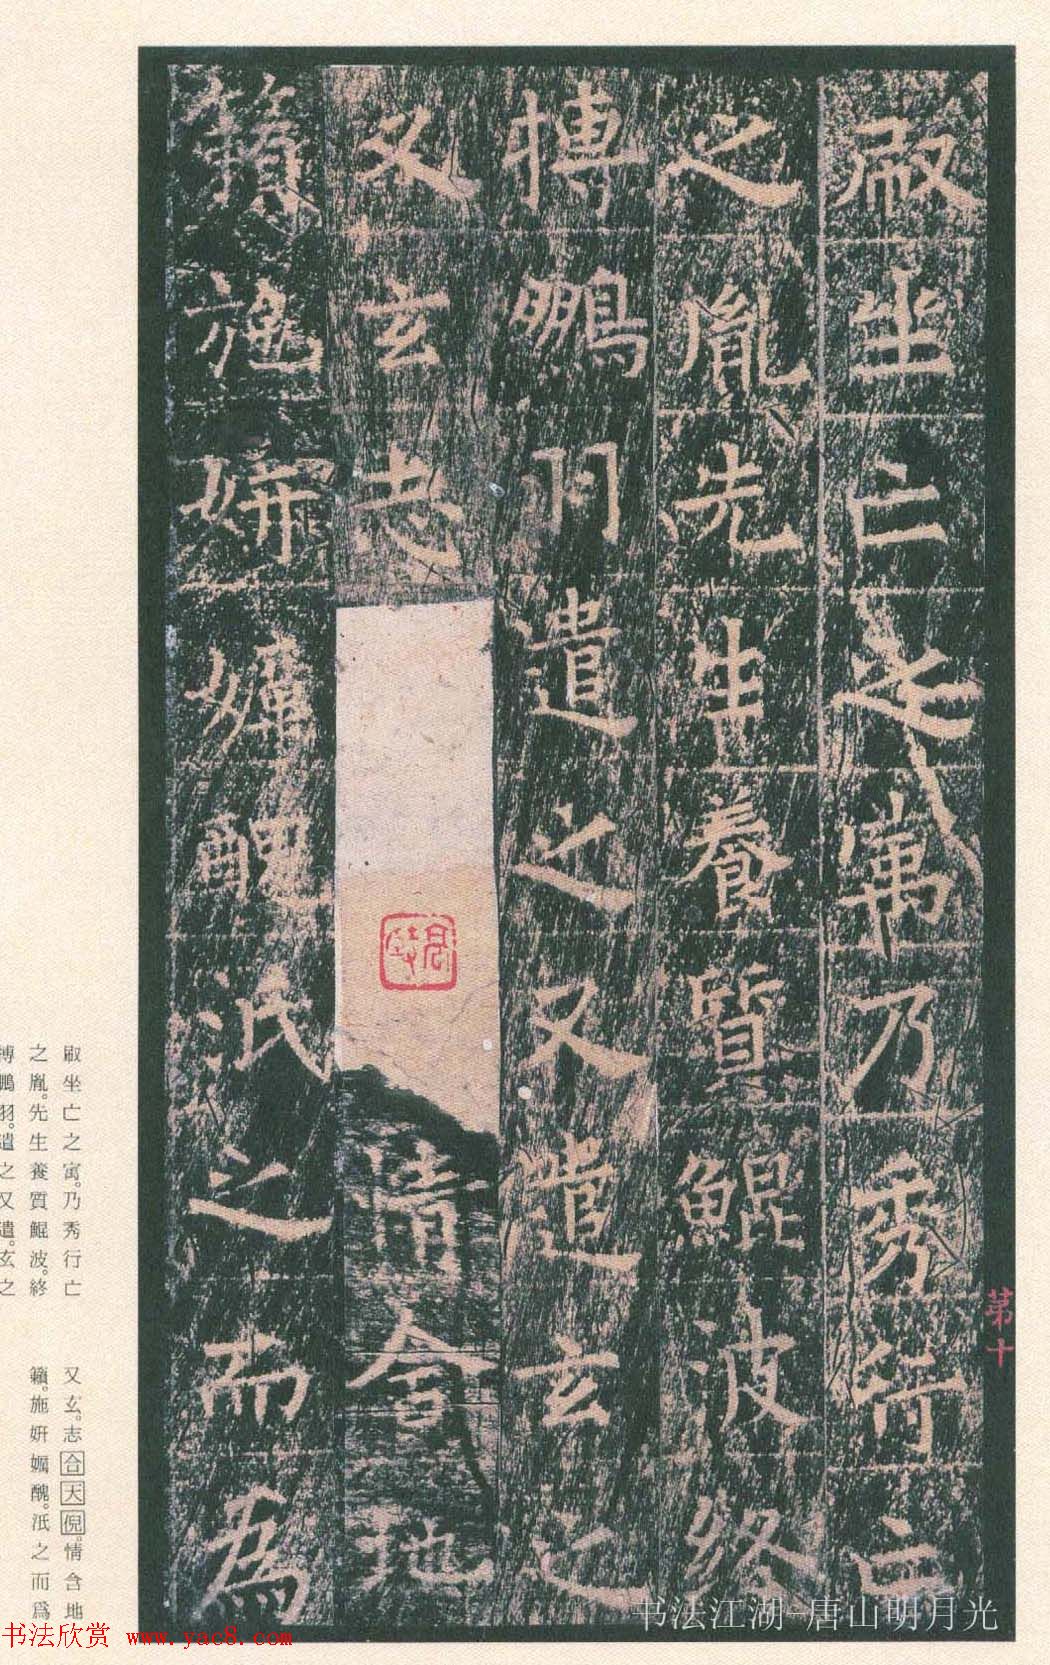 叡坐亡之寓乃秀行亡
之胤先生養質鯤波終
搏鵬羽遺之又遺玄之
又玄志情含地
籟施妍嫫醜泯之而為
第十
叡坐亡之寓。乃秀行亡
之胤。先生養質鯤波。終
搏鵬羽。遺之又遺。玄之
又玄。志合天倪。情含地
籟。施妍嫫醜。泯之而爲
书法江湖-唐山明月光
书法欣赏 www.yac8.com